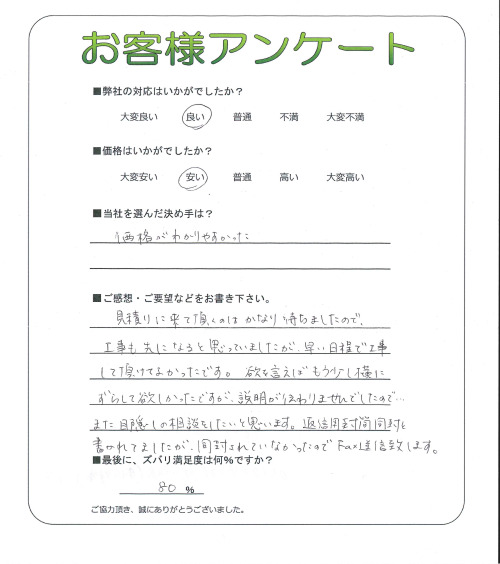 お客様アンケート
■弊社の対応はいかがでしたか？
大変良い 良い 普通 不満 大変不満
■価格はいかがでしたか？
大変安い 安い 普通 高い 大変高い
■当社を選んだ決め手は？
価格がわかりやすかった
■ご感想・ご要望などをお書き下さい。
見積りに来て頂くのはかなり待ちましたので、
工事も先になると思っていましたが、早い日程で工事
して頂けてよかったです。欲を言えばもう少し横に
ずらして欲しかったですが、説明が伝わりませんでしたので…
また目隠しの相談をしたいと思います。返信用封筒同封と
書かれてましたが、同封されていなかったのでFax送信致します。
■最後に、ズバリ満足度は何%ですか？
80 %
ご協力頂き、誠にありがとうございました。